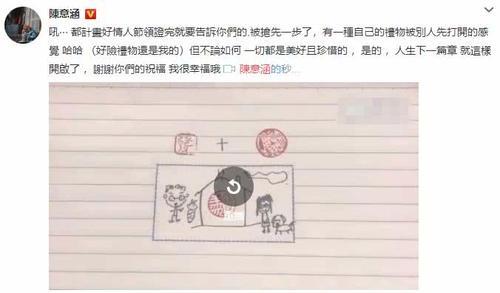 陳意涵
吼⋯ 都計畫好情人節領證完就要告訴你們的.被搶先一步了，有一種自己的禮物被別人先打開的感
覺 哈哈 （好險禮物還是我的）但不論如何 一切都是美好且珍惜的 ，是的， 人生下一篇章 就這樣
開啟了 ，謝謝你們的祝福 我很幸福哦 陳意涵的秒...
+